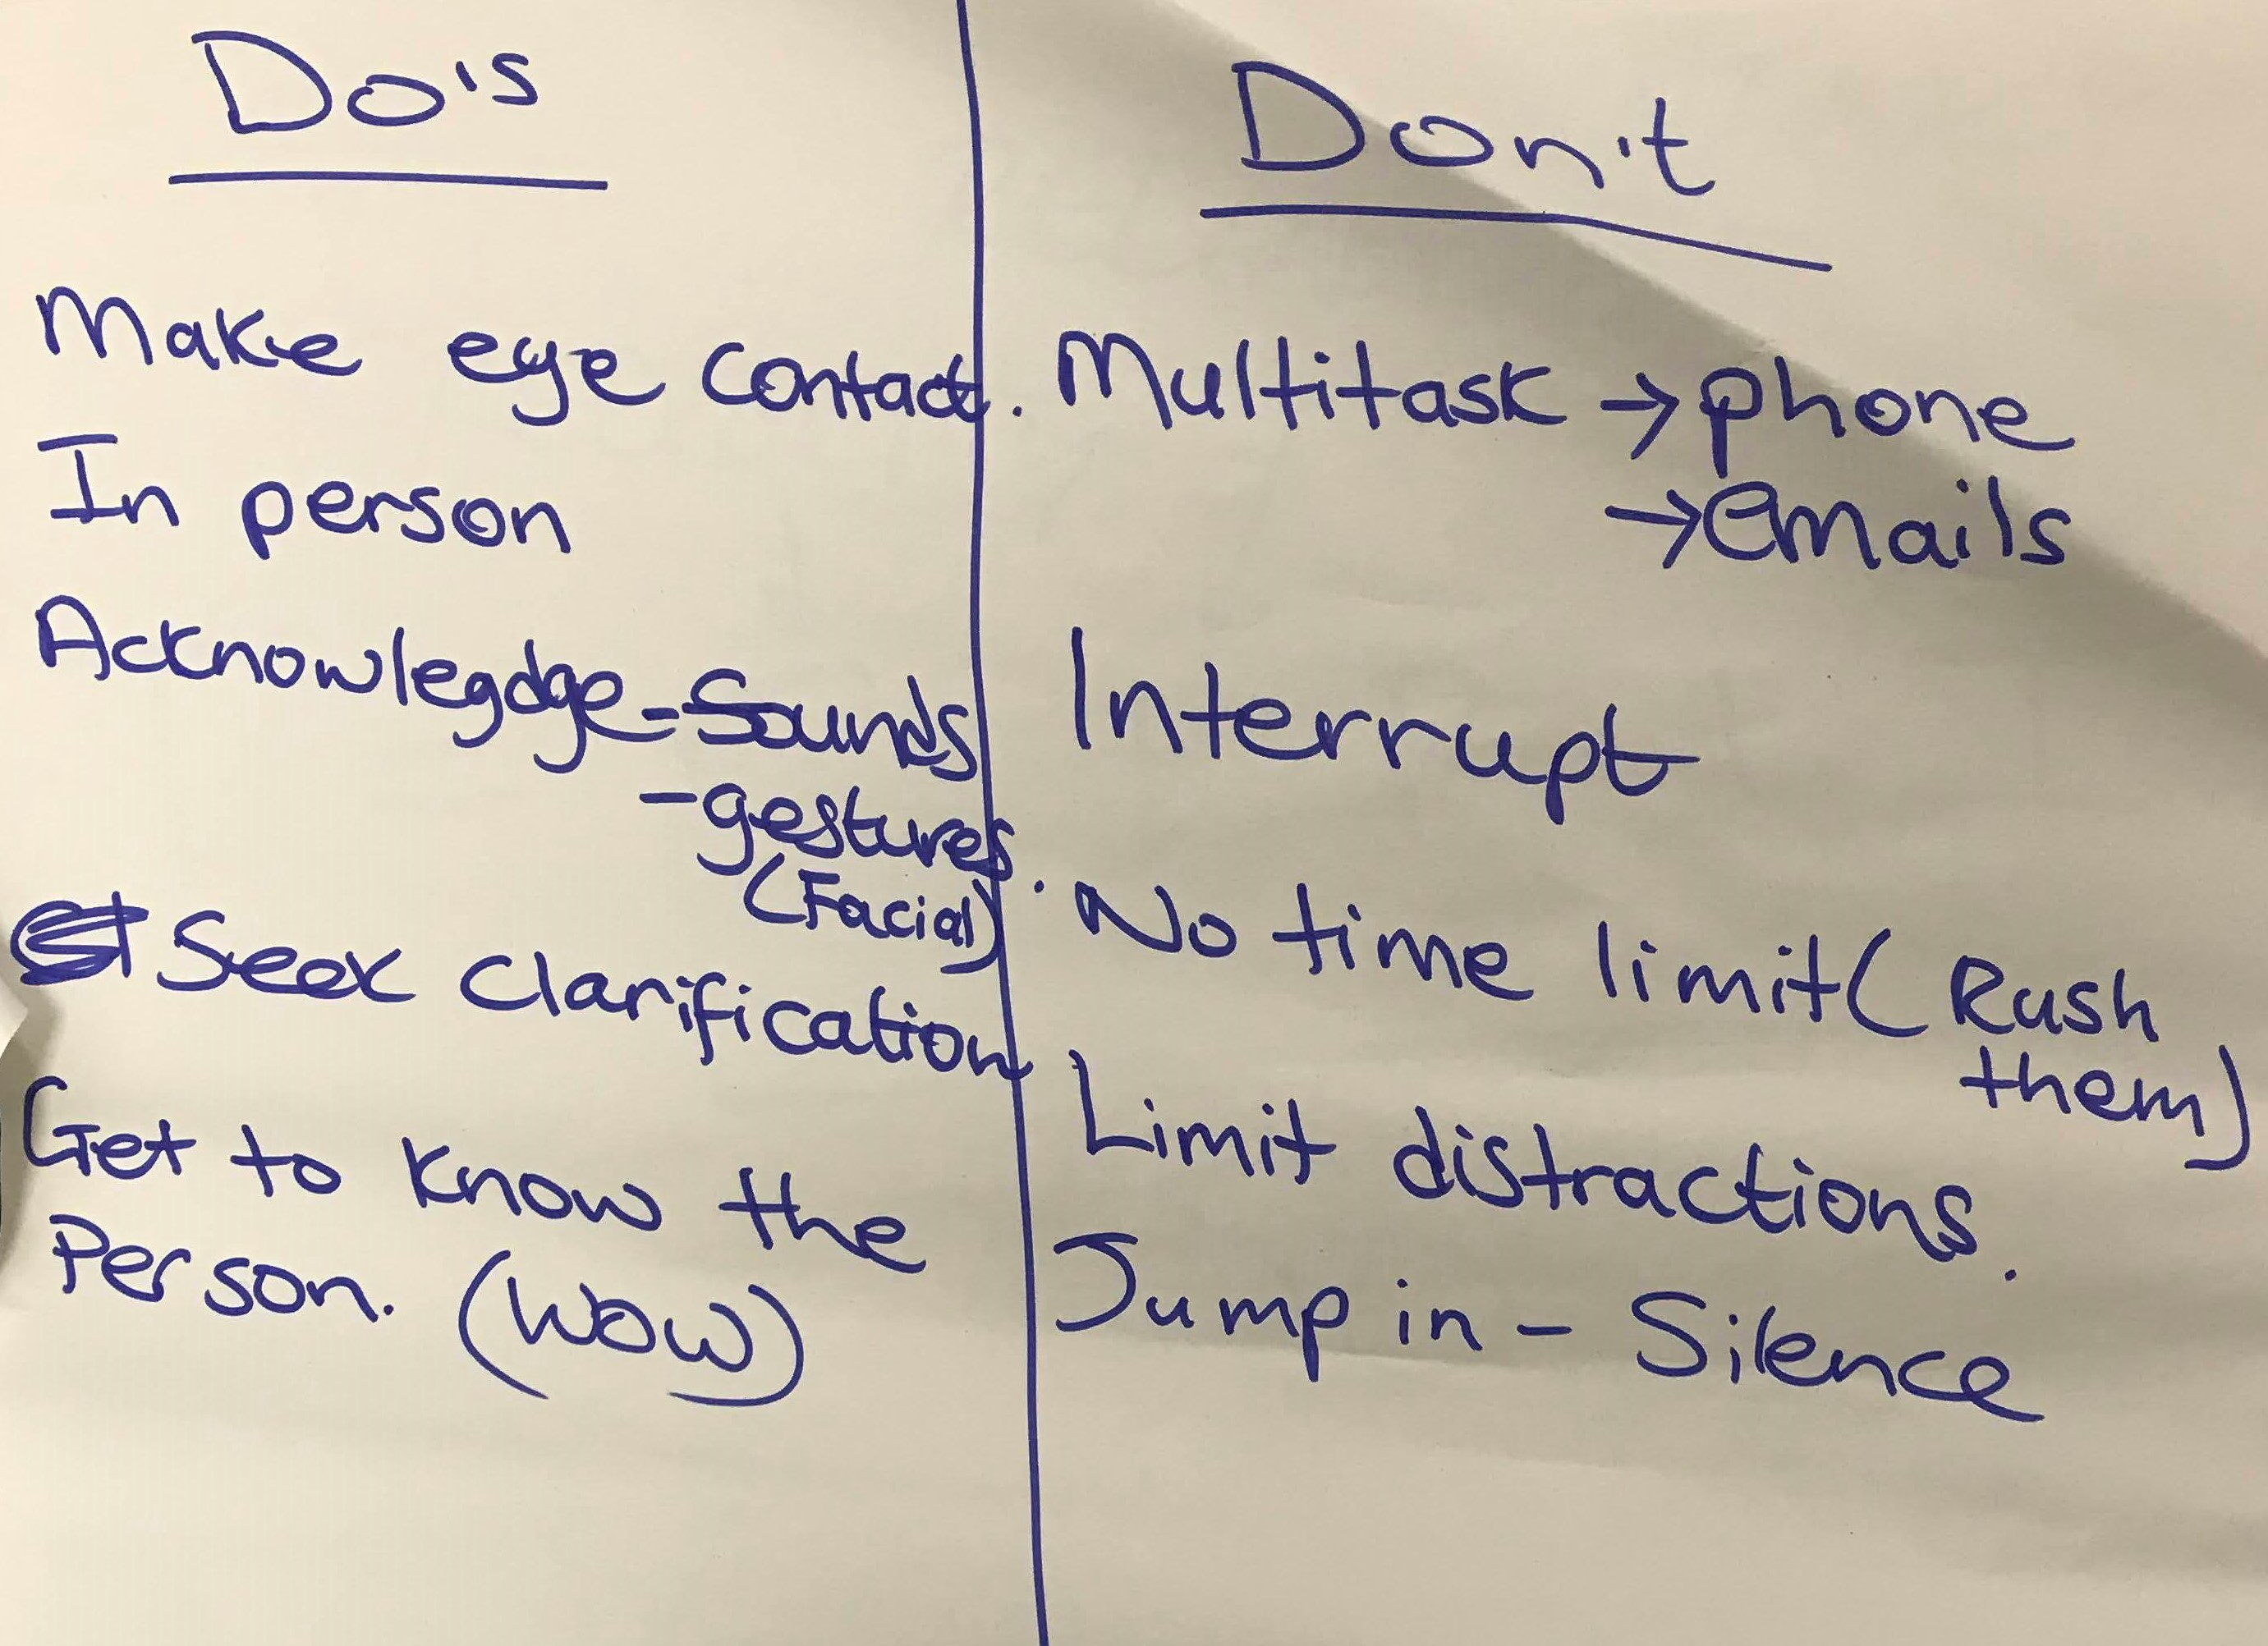 Do's
Make eye contact.
In person
Acknowlegdge - Sounds
- gestures.
(Facial)
Seek clarification
Get to know the
Person. (WOW)
Don't
Multitask → phone
→ emails
Interrupt
No time limit (Rush
them)
Limit distractions.
Jump in - Silence